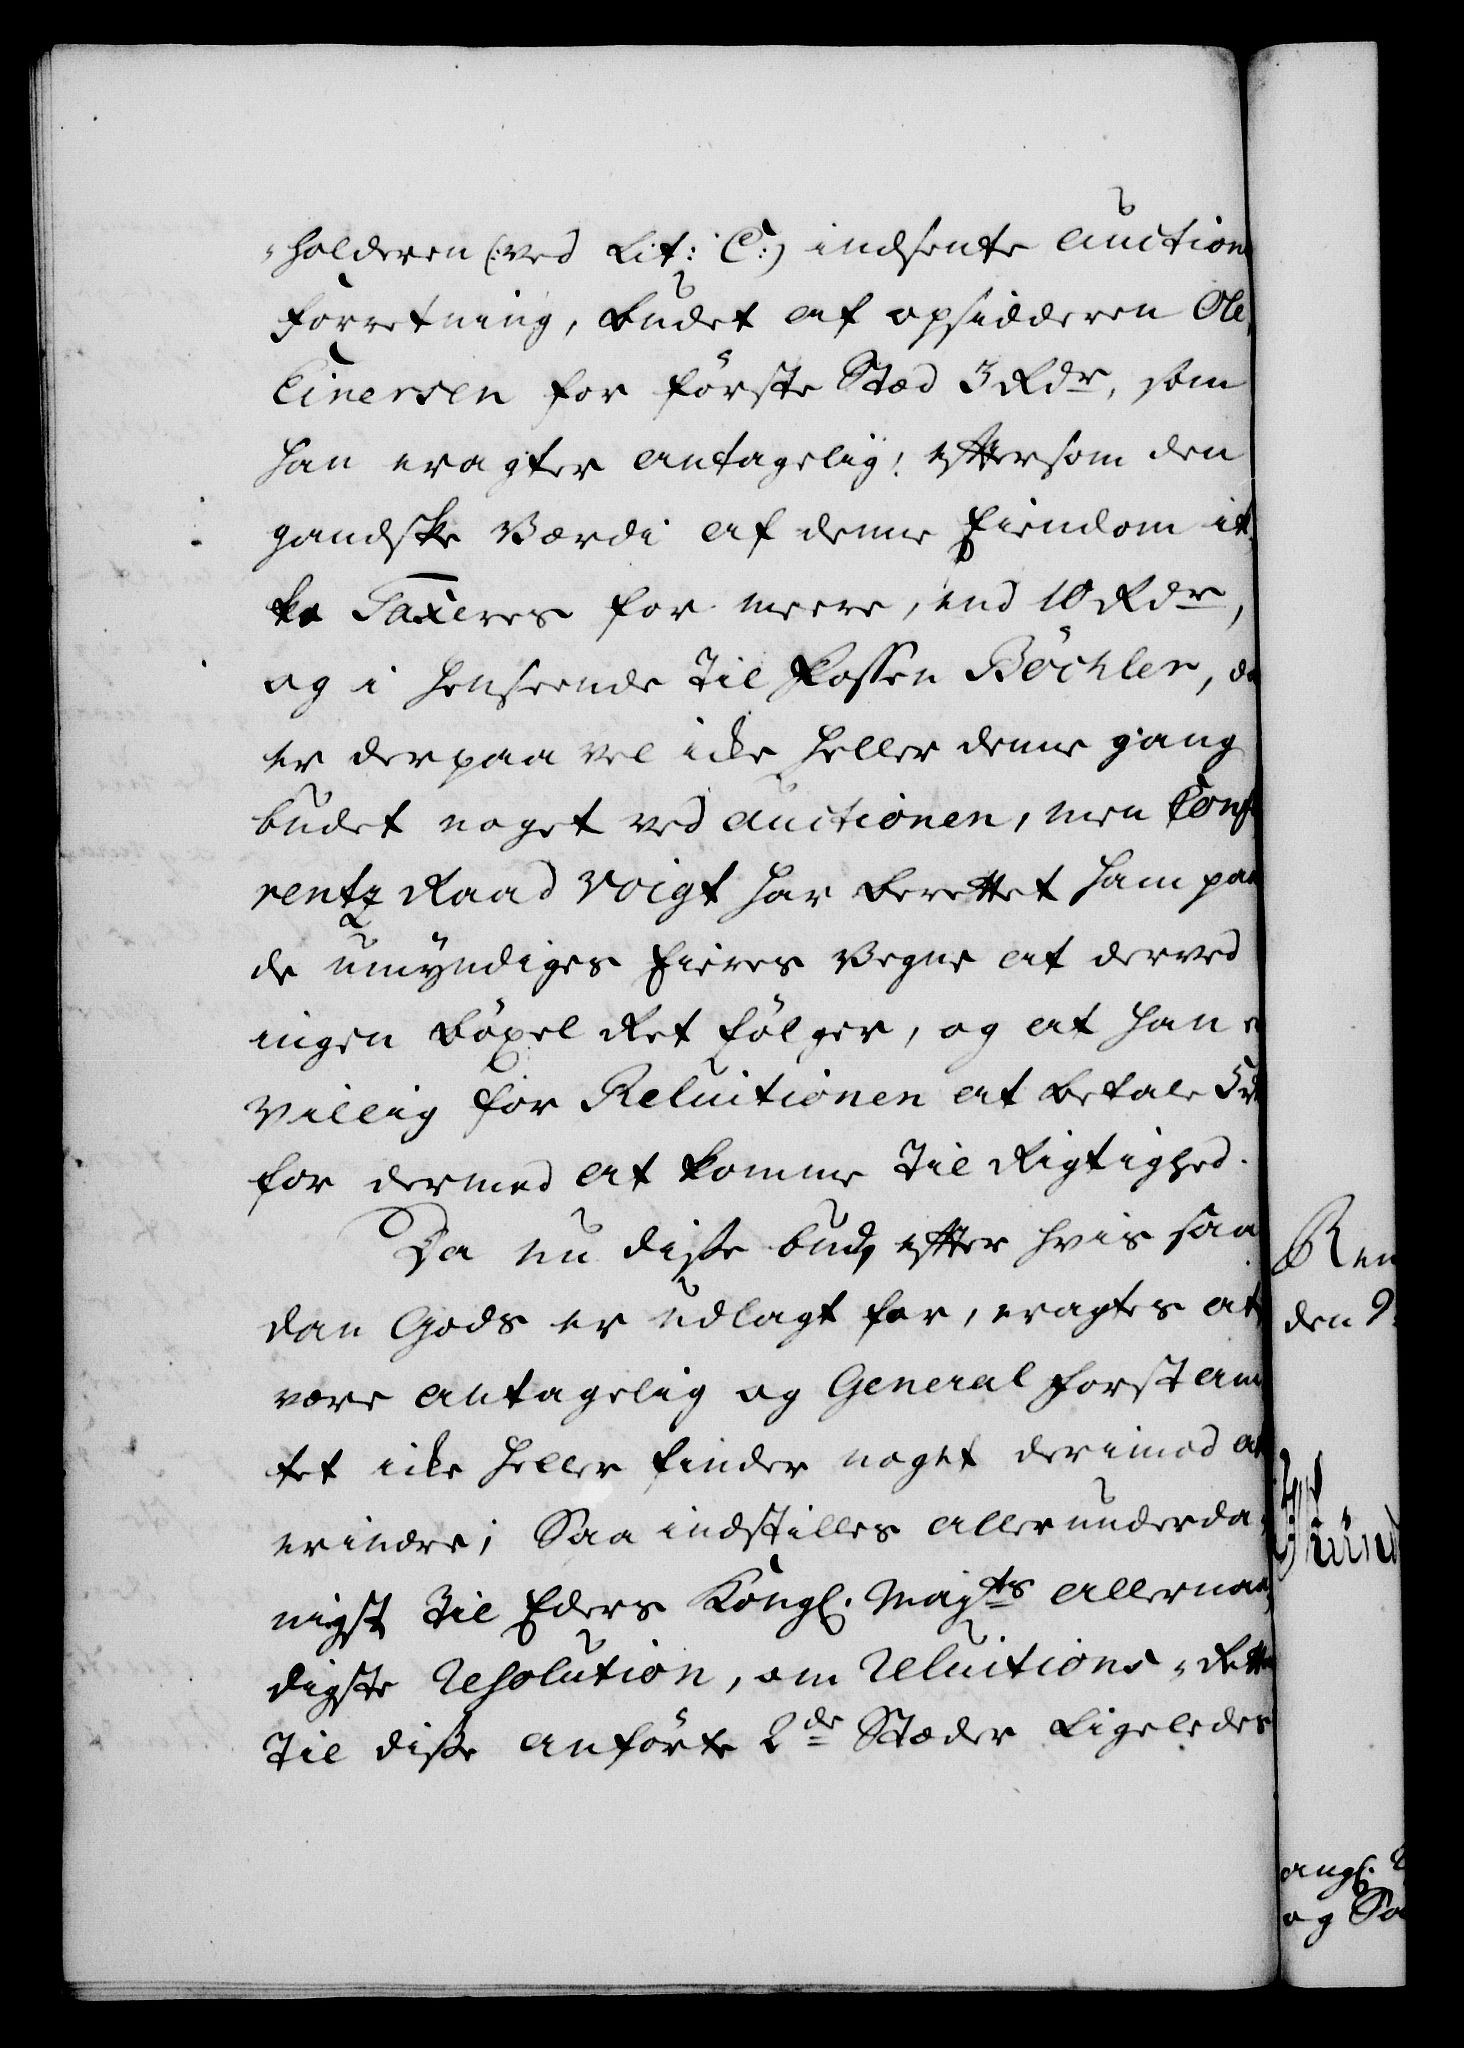 -holderen (:ved Lit: C:) indsente Auction
Forretning, budet af opsidderen Ole
Einersen for første Stæd 3 Rdr, som
han eragter antagelig! eftersom den
gandske Værdi af denne Eiendom ik
ke Taxeres for meere, end 10 Rdr,
og i henseende til Plassen Böchler, da
er derpaa vel icke heller denne gang
budet noget ved Auctionen, men Confe
rentz Raad Voigt har berettet ham paa
de umyndiges Eieres Vegne at derved
ingen Böxel Ret følger, og at han e
villig for Reluitionen at betale 5 Rd
for dermed at komme til Rigtighed.
Da nu disse bud, efter hvis saa
dan Gods er udlagt for, eragtes at
være antagelig og General Forst am
tet icke heller finder noget derimod at
erindre; Saa indstilles allerunderda-
nigst til Eders Kongl. Mayts allernaa,
digste Resolution, om Reluitions-Rette
til disse anførte 2de Stæder Ligeledes
Ren
den 9
angl.
og Sa